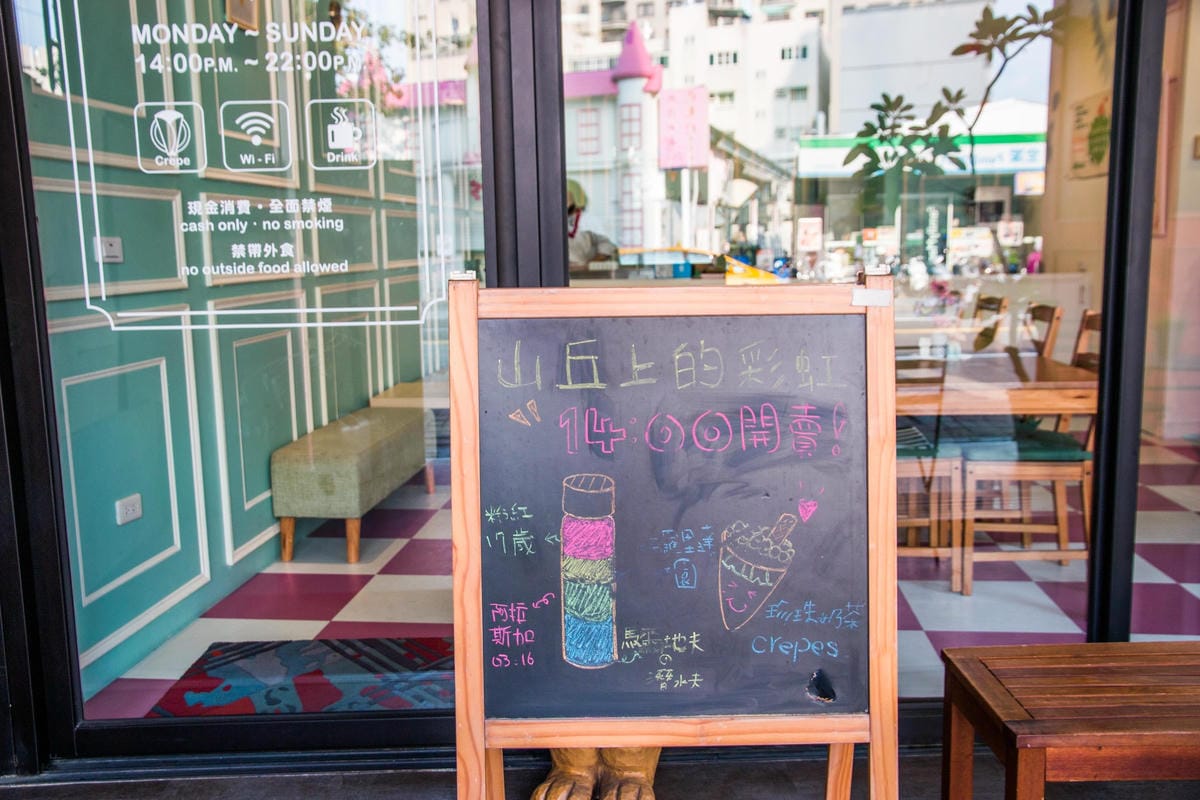 MONDAY ~ SUNDAY
14:00P.M. ~ 22:00P.M.
Crêpe
Wi-Fi
Drink
現金消費・全面禁煙
cash only · no smoking
禁帶外食
no outside food allowed
山丘上的彩虹
14:00開賣!
粉紅
17歲
阿拉
斯加
03:16
馬爾地夫
の
潛水夫
珍珠奶茶
crepes